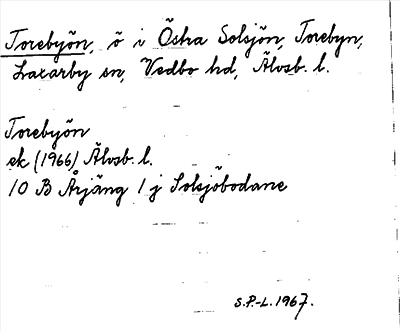 Torebyön, ö i Östra Solsjön, Torebyn,
Laxarby sn, Vedbo hd, Älvsb. l.
Torebyön
ek (1966) Älvsb. l.
10 B Årjäng 1 j Solsjöbodane
S.P.-L. 1967.